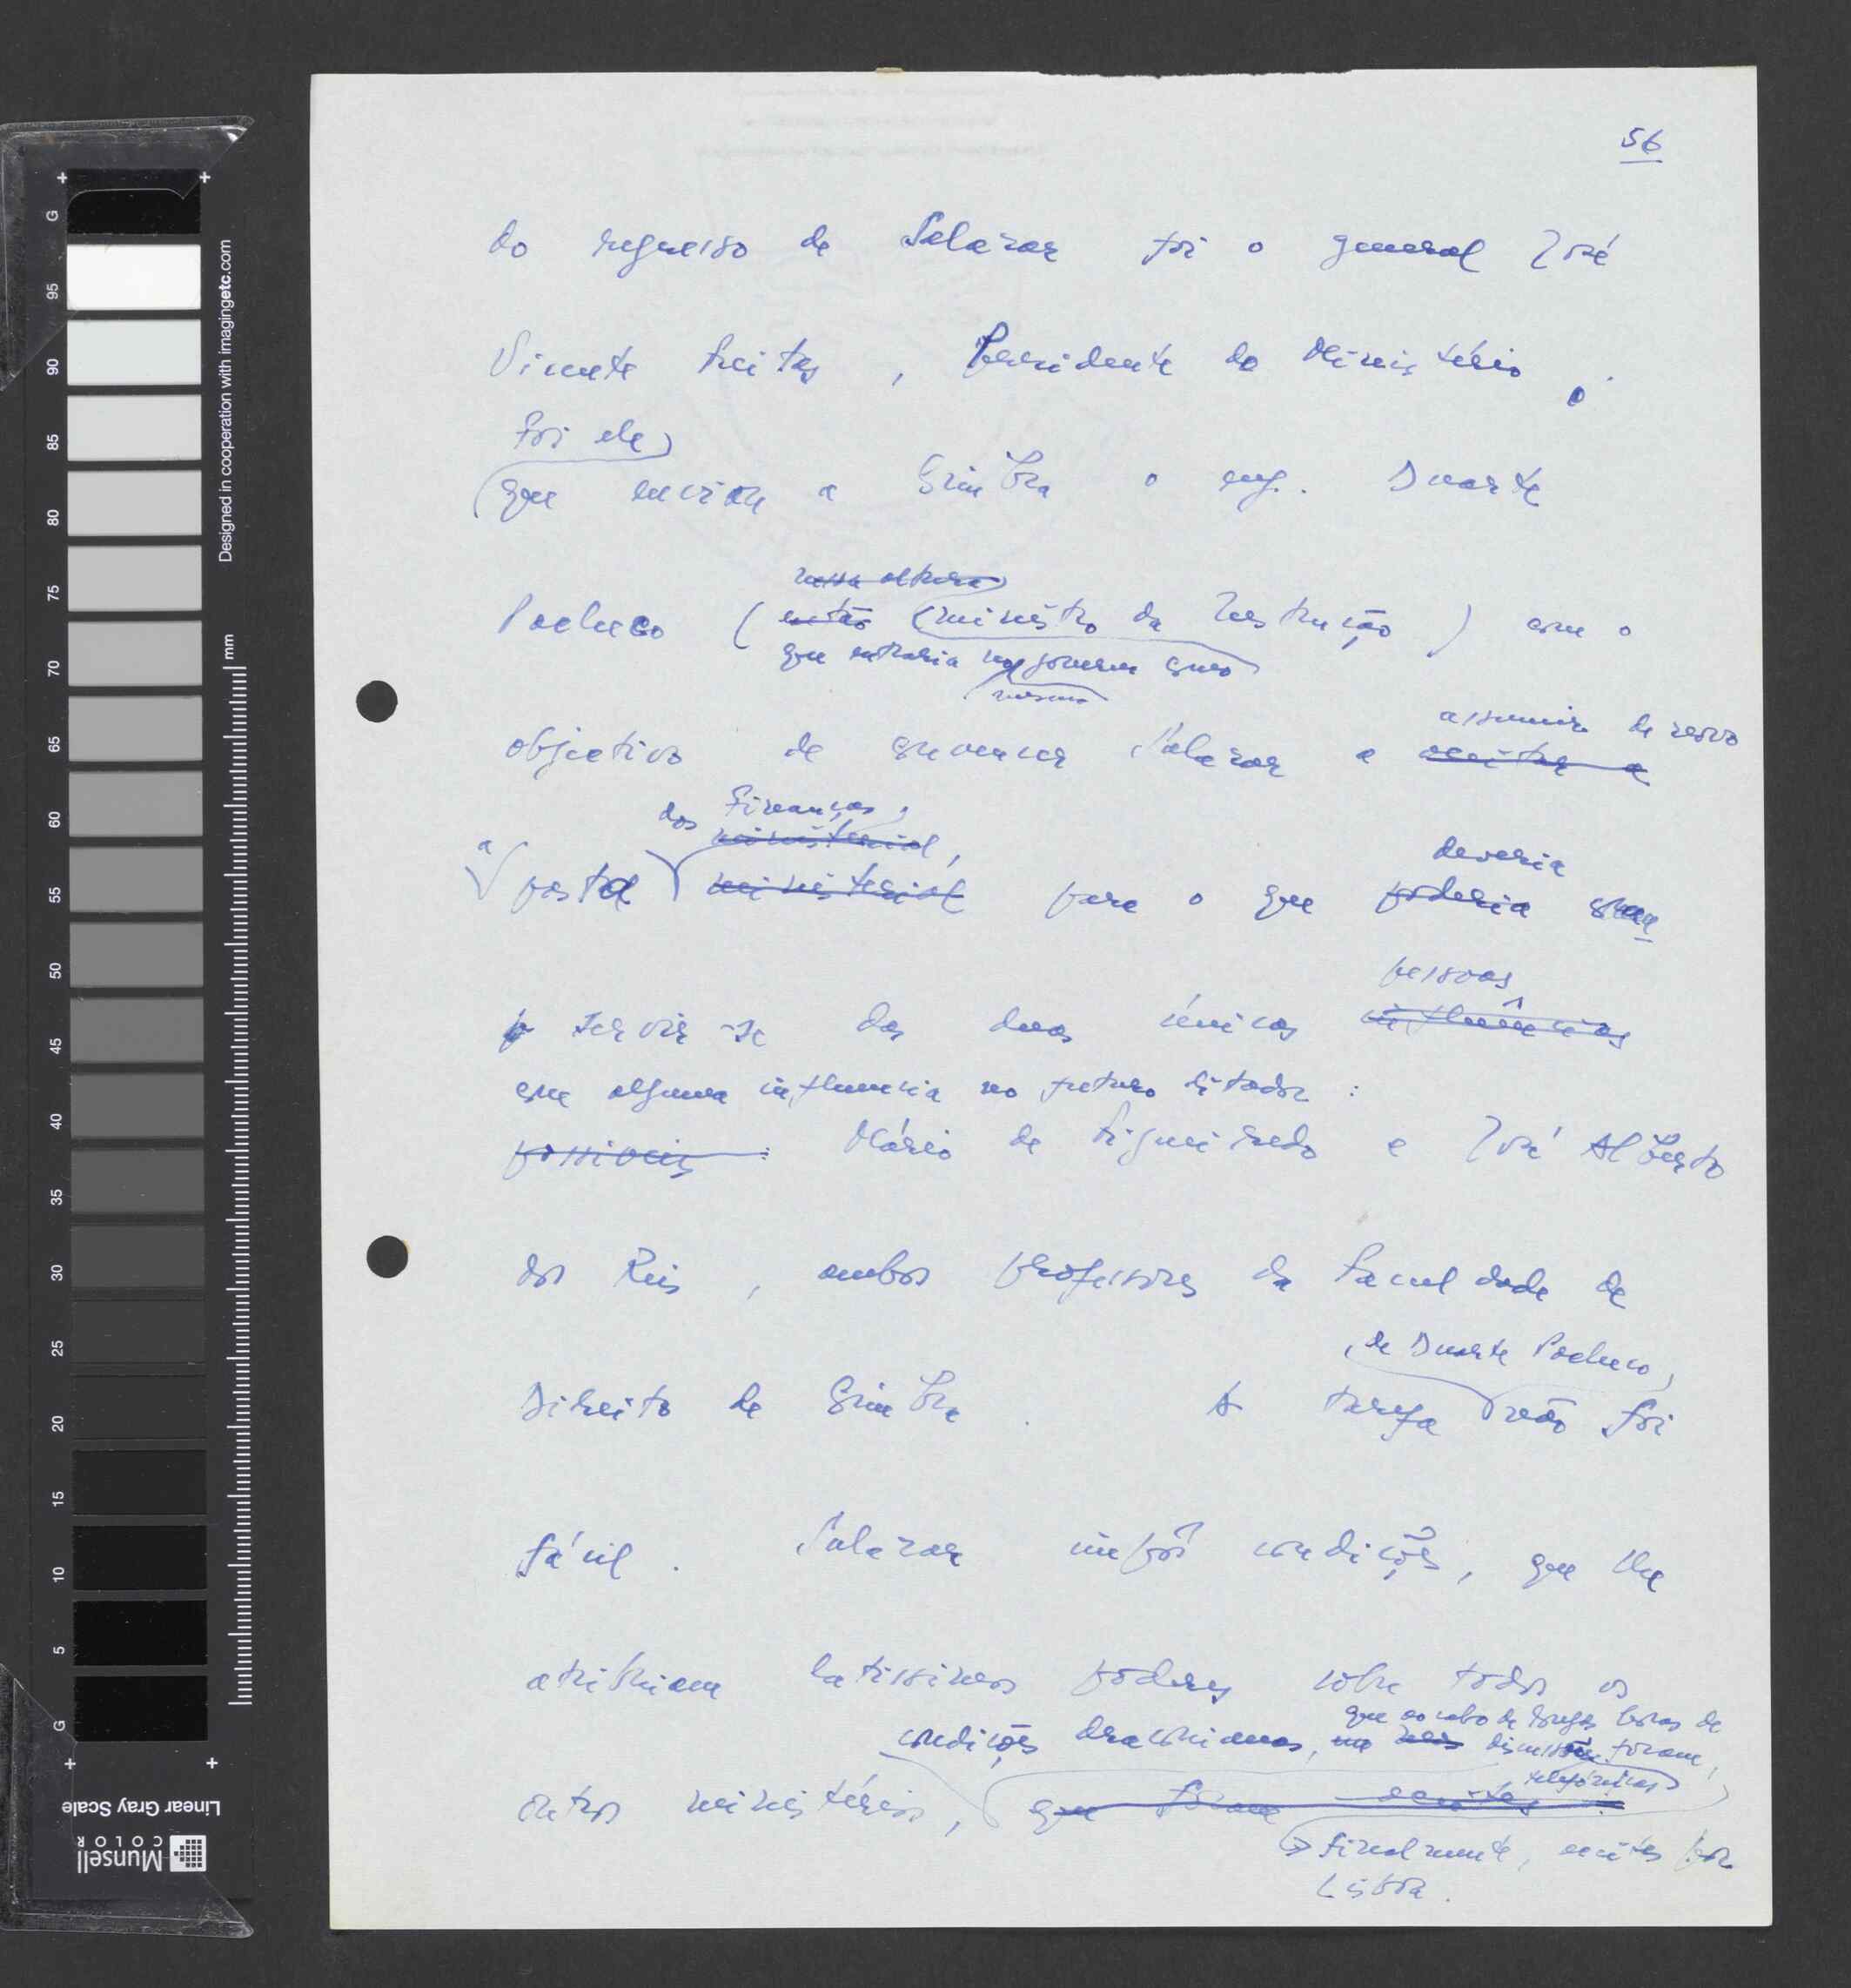 56
do regresso de Salazar foi o general José
Vicente Freitas, Presidente do Ministério.
foi ele
que enviou a Coimbra o eng. Duarte
nessa altura
Pacheco (então ministro da Instrução) com o
que entraria no governo como
mesmo
objectivo de convencer Salazar a aceitar a
assumir de novo
das Finanças,
ministerial,
a pasta ministerial para o que poderia
deveria
pessoas
servir-se das duas únicas influências
com alguma influencia no futuro ditador:
possíveis: Mário de Figueiredo e José Alberto
dos Reis, ambos professores da Faculdade de
, de Duarte Pacheco,
Direito de Coimbra. A tarefa não foi
fácil. Salazar impôs condições, que lhe
atribuiam latissimos poderes sobre todos os
que ao cabo de longas horas de
condições draconianas, discussões foram,
telefónicas
outros ministérios, que foram aceites.
finalmente, aceites por
Lisboa.
Designed in cooperation with imagingetc.com
mm
G
95
90
85
80
75
70
65
60
55
50
45
40
35
30
25
20
15
10
5
G
Linear Gray Scale
Munsell
COLOR